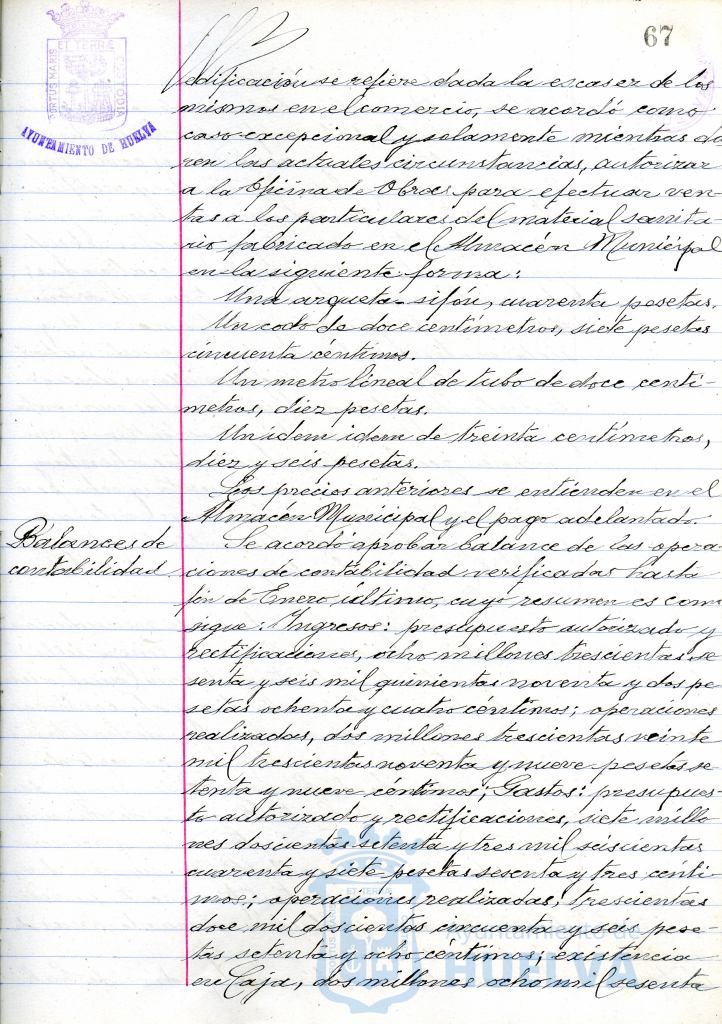 67
PORTUS MARIS
ET TERRÆ
CUSTODIA
AYUNTAMIENTO DE HUELVA
edificación se refiere dada la escasez de los
mismos en el comercio, se acordó como
caso excepcional y solamente mientras du-
ren las actuales circunstancias, autorizar
a la Oficina de Obras para efectuar ven-
tas a los particulares del material sanita-
rio fabricado en el Almacén Municipal
en la siguiente forma:
Una arqueta-sifón, cuarenta pesetas.
Un codo de doce centímetros, siete pesetas
cincuenta céntimos.
Un metro lineal de tubo de doce centí-
metros, diez pesetas.
Un idem idem de treinta centímetros,
diez y seis pesetas.
Los precios anteriores se entienden en el
Almacén Municipal y el pago adelantado.
Balances de
contabilidad
Se acordó aprobar balance de las opera-
ciones de contabilidad verificadas hasta
fin de Enero último, cuyo resumen es como
sigue: Ingresos: presupuesto autorizado y
rectificaciones, ocho millones trescientas se-
senta y seis mil quinientas noventa y dos pe-
setas ochenta y cuatro céntimos; operaciones
realizadas, dos millones trescientas veinte
mil trescientas noventa y nueve pesetas se-
tenta y nueve céntimos; Gastos: presupues-
to autorizado y rectificaciones, siete millo-
nes doscientas setenta y tres mil seiscientas
cuarenta y siete pesetas sesenta y tres cénti-
mos; operaciones realizadas, trescientas
doce mil doscientos cincuenta y seis pese-
tas setenta y ocho céntimos; existencia
en Caja, dos millones ocho mil sesenta
Ayuntamiento de
HUELVA